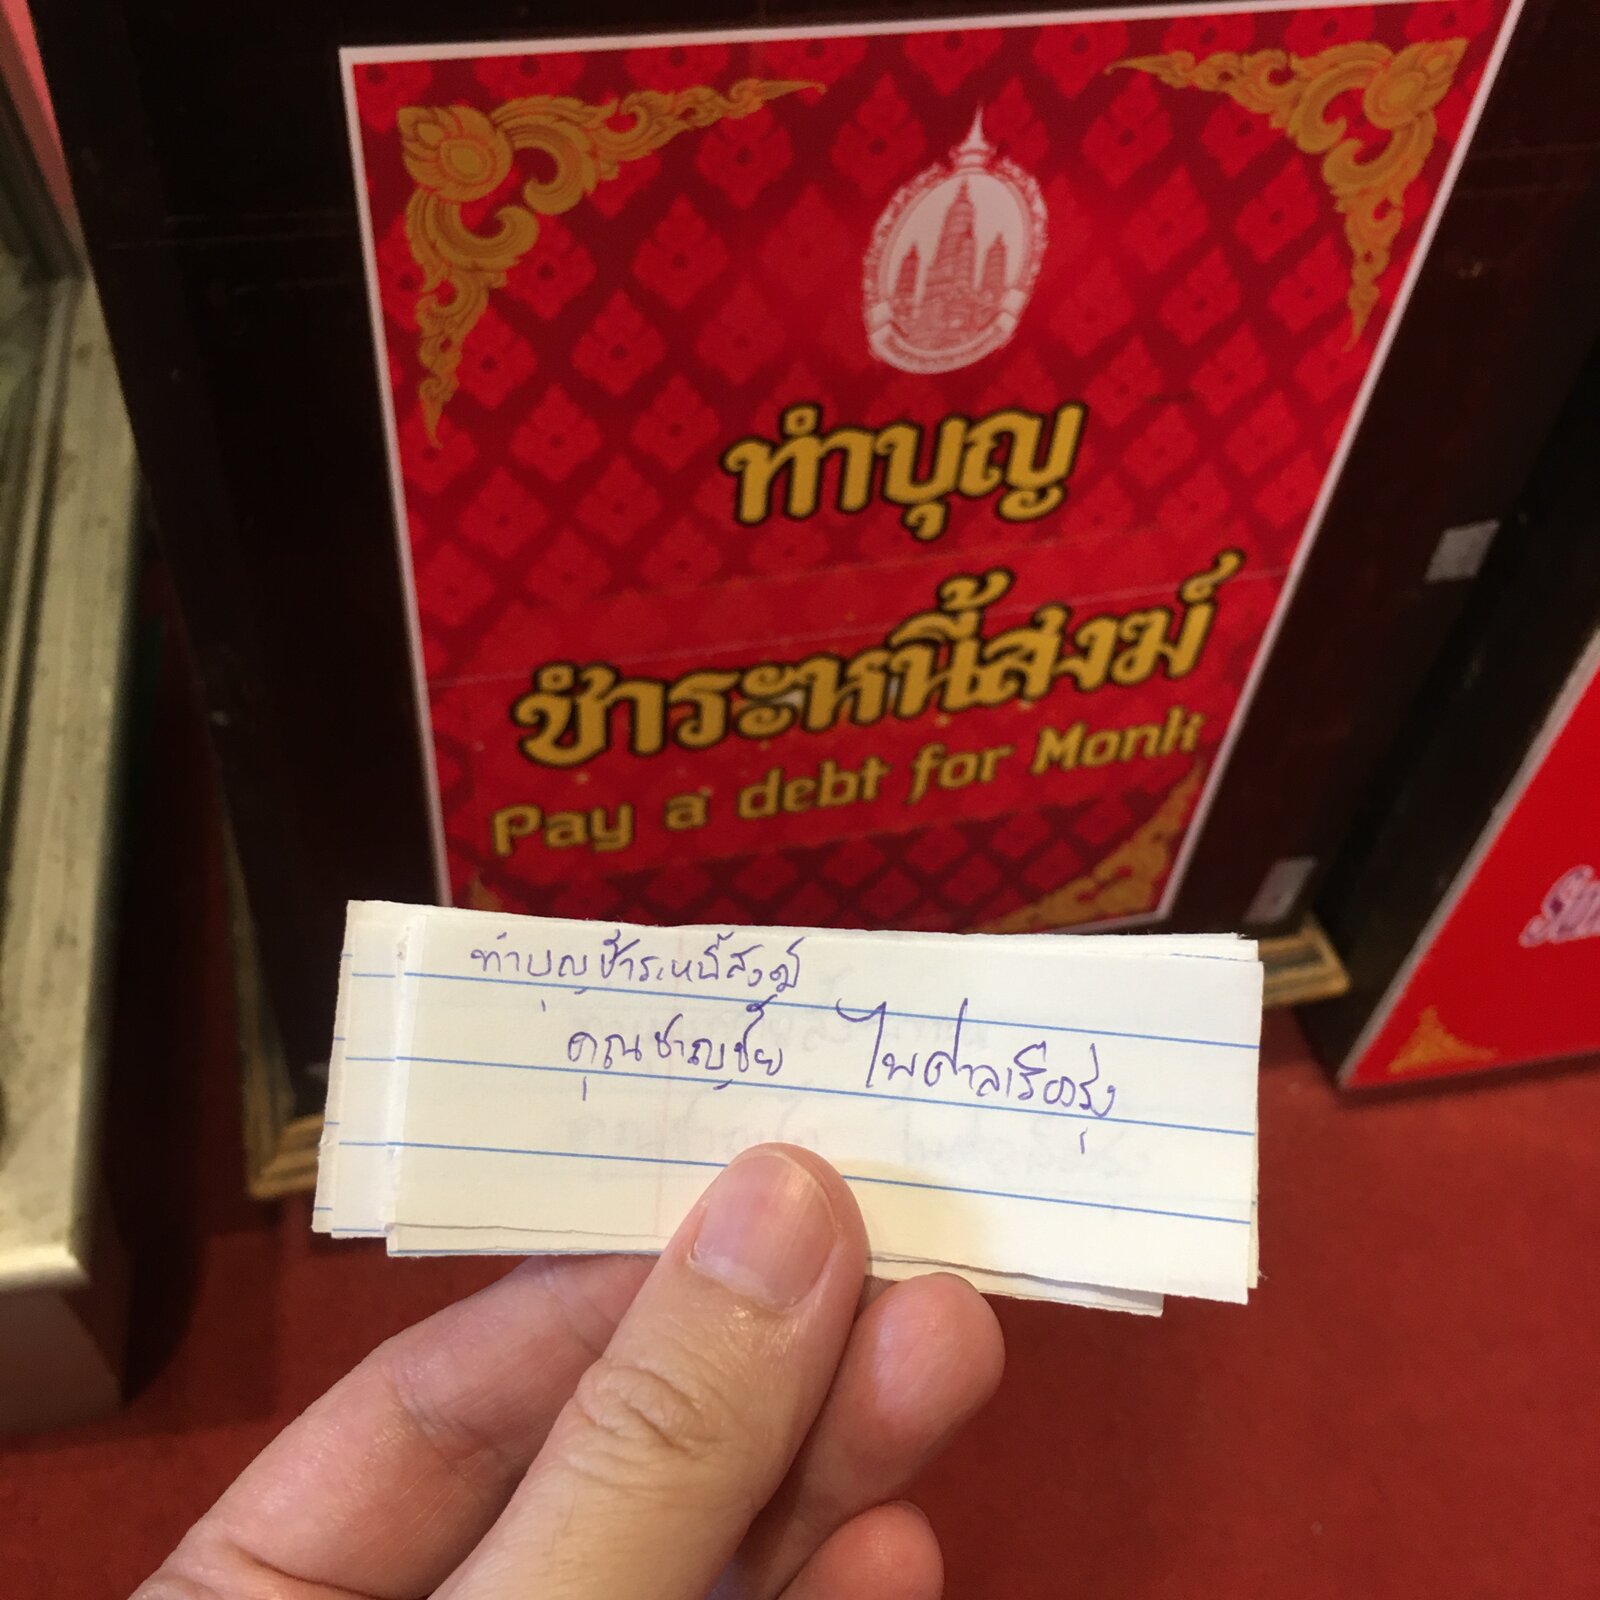 ทำบุญ
ชำระหนี้สงฆ์
Pay a debt for Monk
ทำบุญชำระหนี้สงฆ์
คุณชาญชัย ไพศาลเรืองรุ่ง